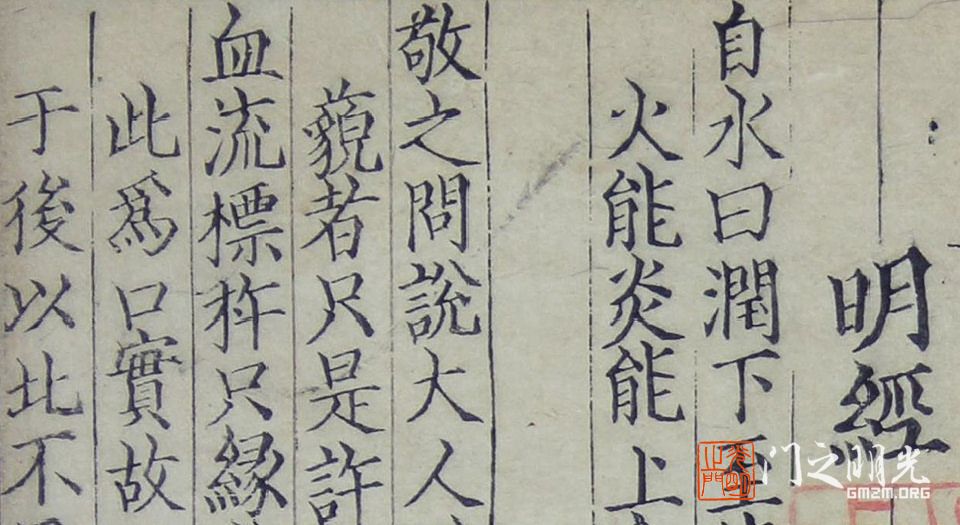 明經
自水曰潤下至
火能炎能上
敬之問說大人
藐者只是許
血流標杵只緣
此爲口實故
于後以此不
门之明光
GMZM.ORG